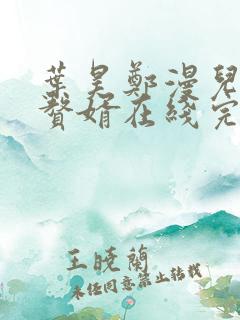 葉昊鄭漫兒
贅婿在綫完
王曉蘭
未經同意禁止轉載